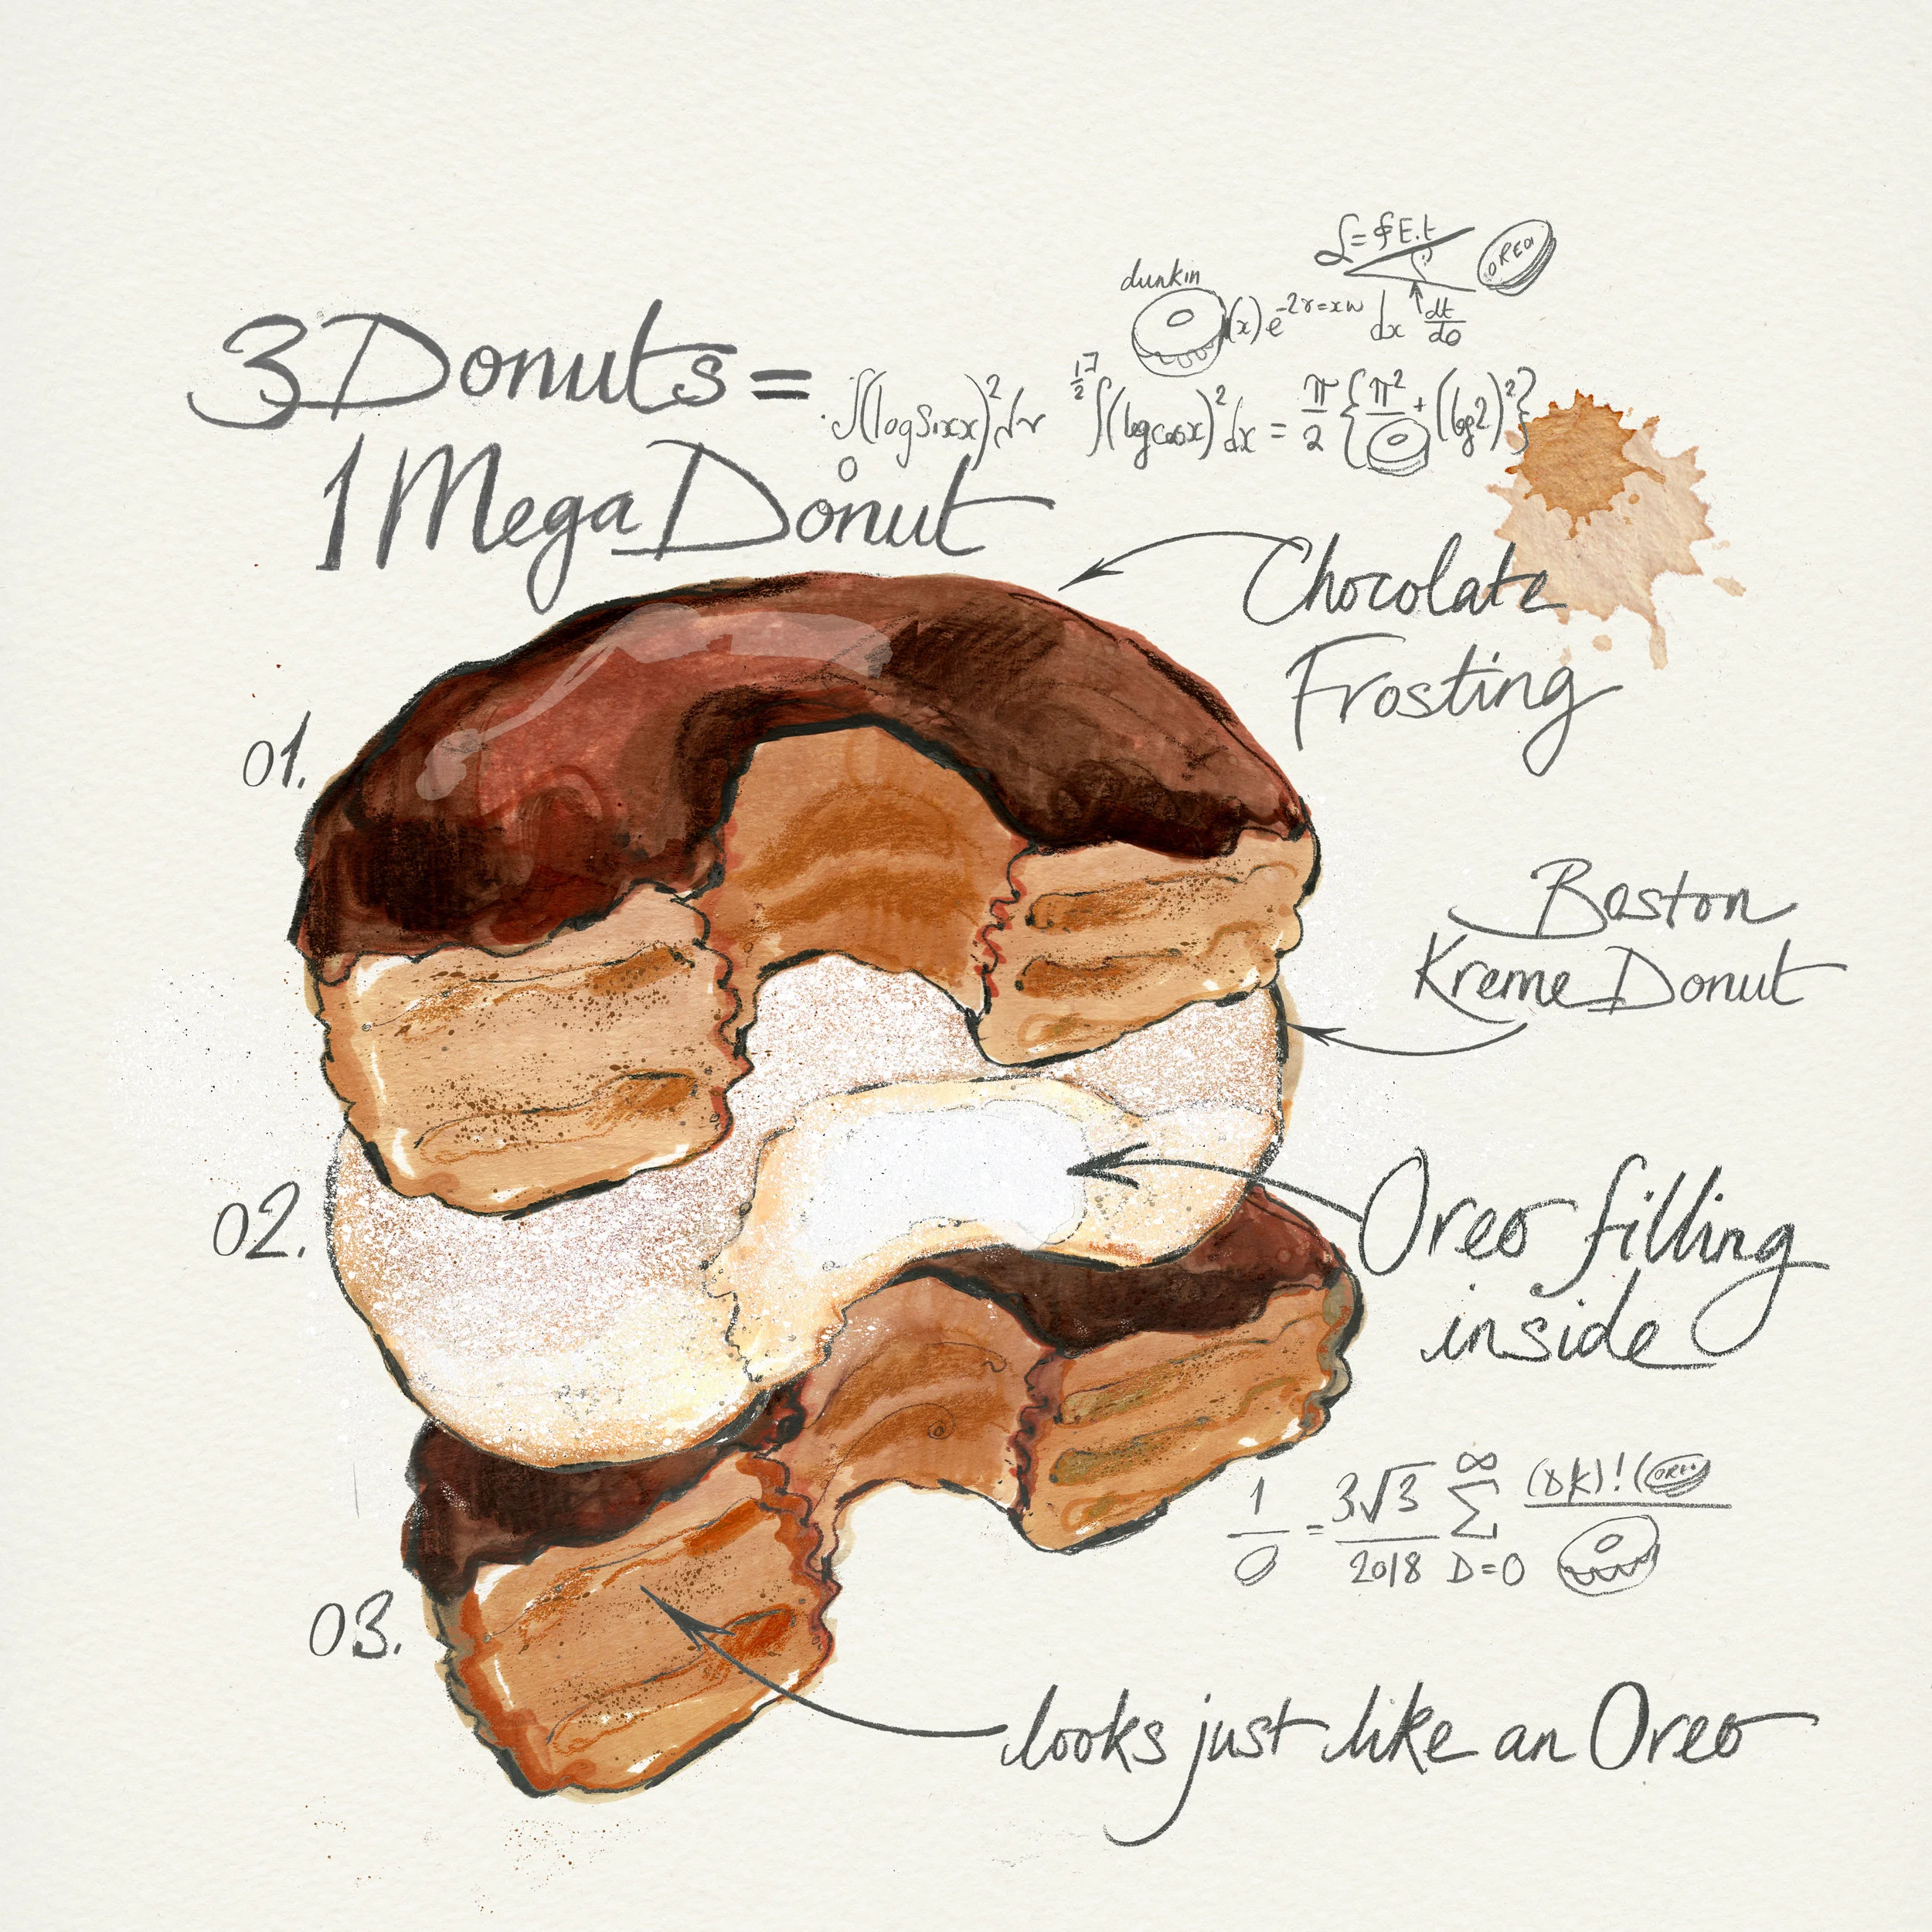 3 Donuts =
1 Mega Donut
dunkin
OREO
(x) e^-2r=xw dx dt/do
∫(log Sixx)² dx
∫(log cosx)² dx = π/2 { π² + (log 2)² }
Chocolate
Frosting
01.
Boston
Kreme Donut
02.
Oreo filling
inside
1 = 3√3 ∞ Σ (DK)! (OREO
2018 D=0
03.
looks just like an Oreo